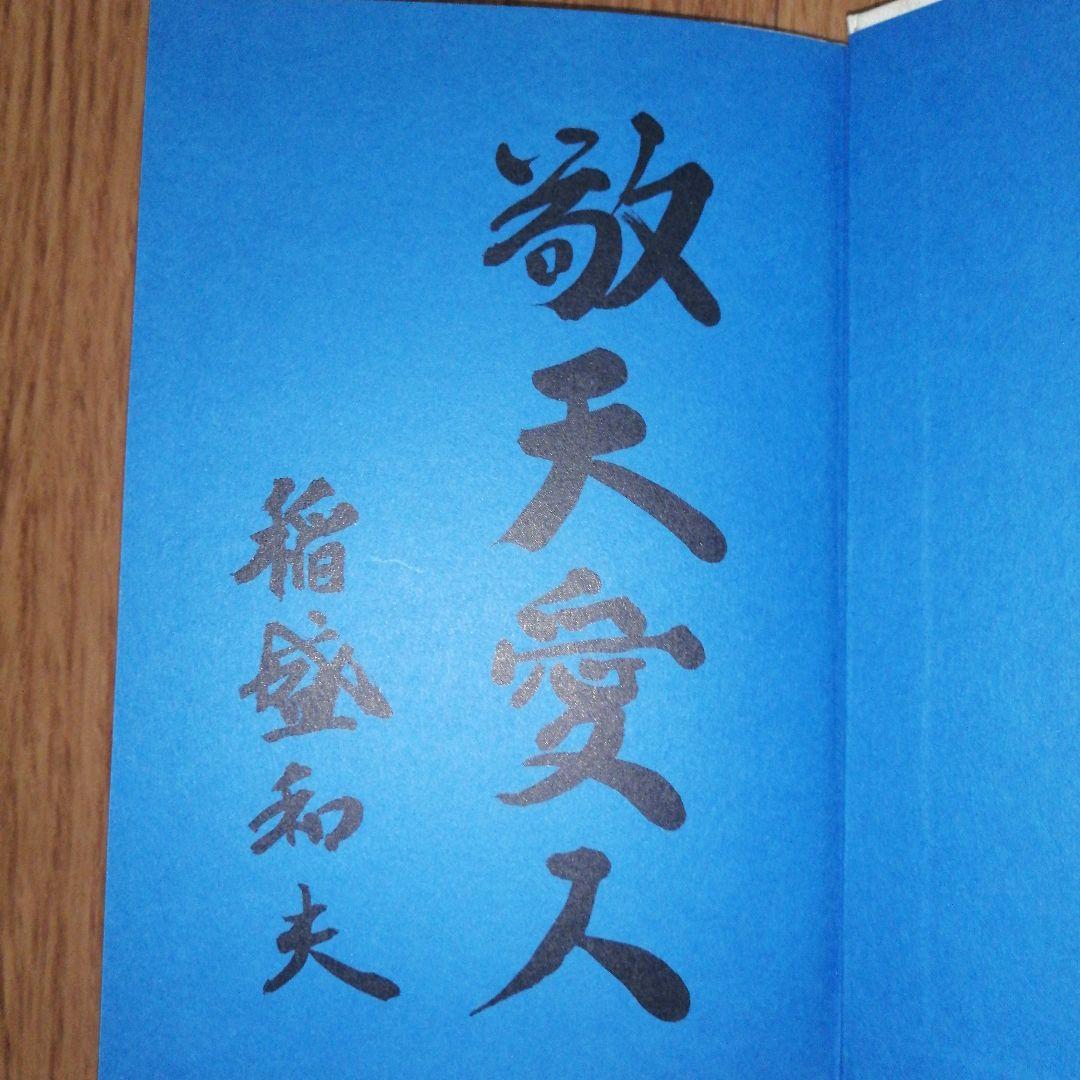 敬天愛人
稲盛和夫